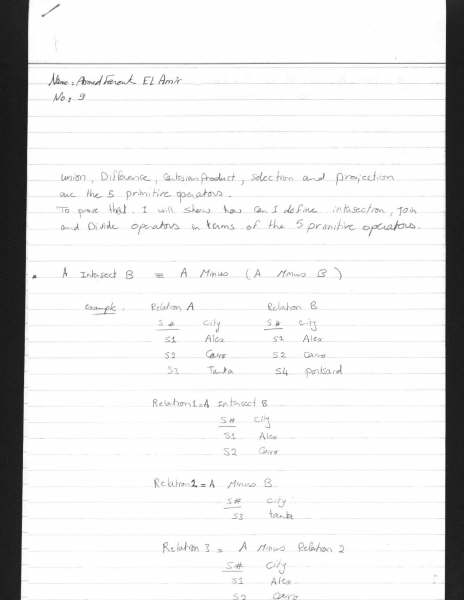 Name: Ahmed Farouk EL Amir
No: 9
union, Difference, Cartesian product, Selection and projection
are the 5 primitive operators.
To prove that, I will show how can I define intersection, Join
and Divide operators in terms of the 5 primitive operators.
A Intersect B ≡ A Minus (A Minus B)
Example. Relation A Relation B
S# City S# City
S1 Alex S1 Alex
S2 Cairo S2 Cairo
S3 Tanta S4 portsaid
Relation 1 = A Intersect B
S# City
S1 Alex
S2 Cairo
Relation 2 = A Minus B
S# City
S3 tanta
Relation 3 = A Minus Relation 2
S# City
S1 Alex
S2 Cairo